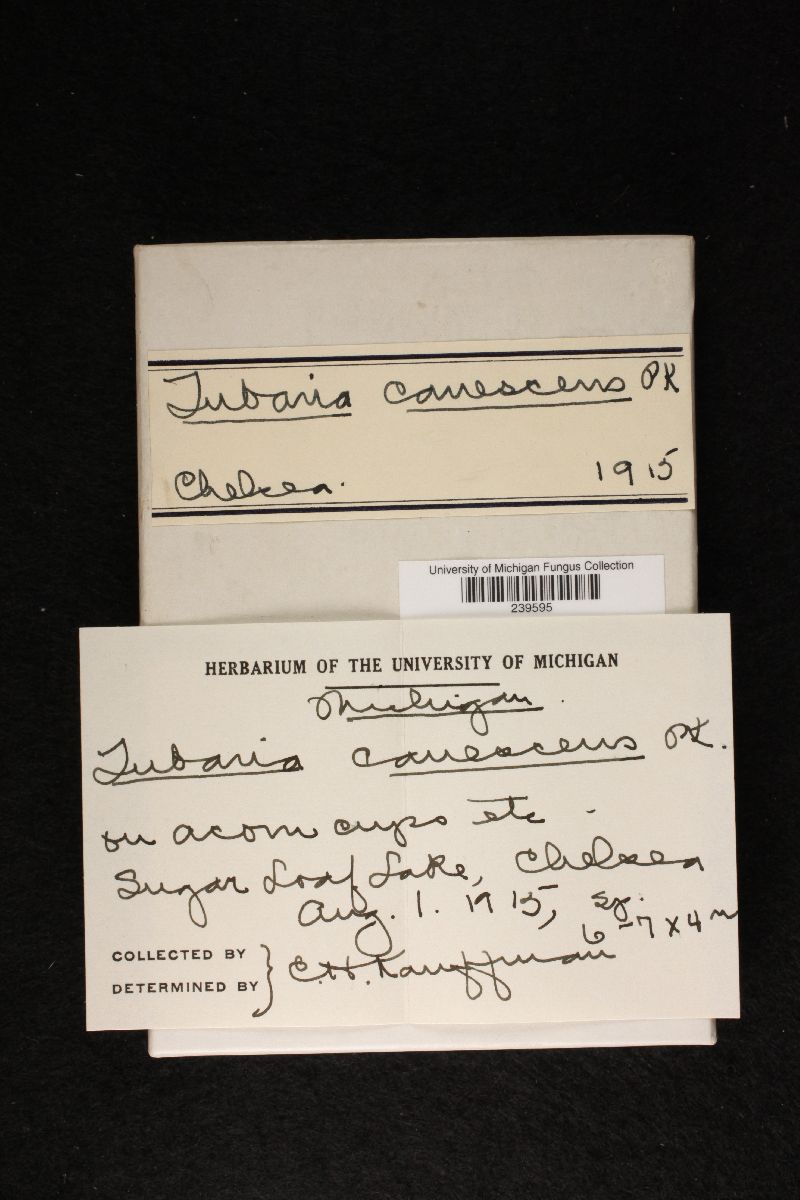 Tubaria canescens PK
Chelsea. 1915
University of Michigan Fungus Collection
239595
HERBARIUM OF THE UNIVERSITY OF MICHIGAN
Michigan.
Tubaria canescens PK.
on acorn cups etc -
Sugar Loaf Lake, Chelsea
Aug. 1. 1915,
6-7 x 4
COLLECTED BY
DETERMINED BY
C.H. Kauffman